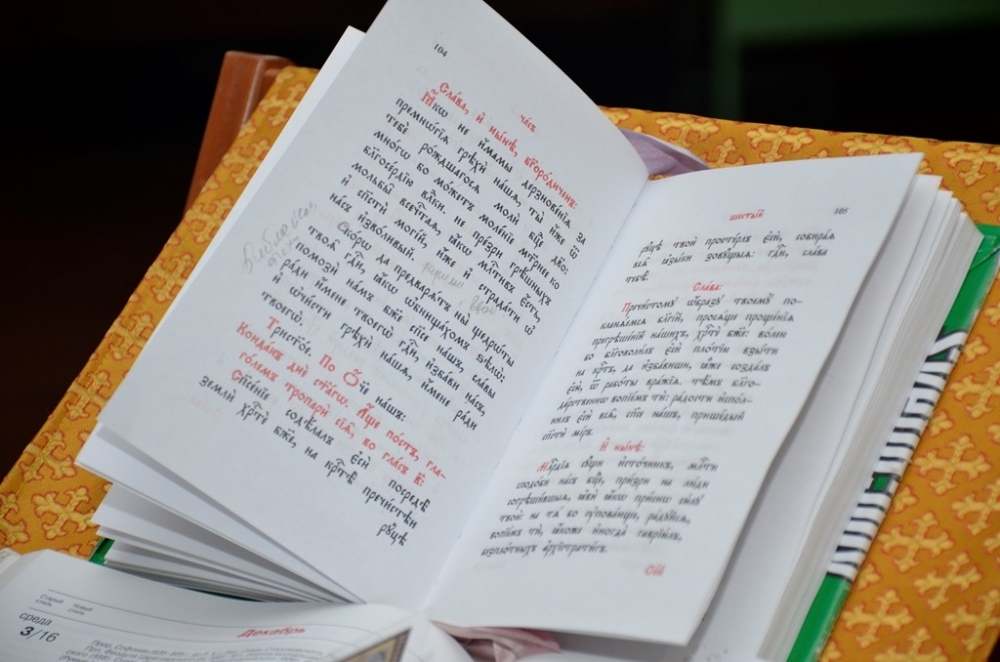 104
ча́съ
Сла́ва, и҆ ны́нѣ, бг҃оро́диченъ:
Ꙗ҆́кѡ не и҆́мамы дерзнове́нїѧ за
премнѡ́гїѧ грѣхѝ на́шѧ, ты̀ и҆́же ѿ
тебє̀ ро́ждшагосѧ молѝ бцⷣе дв҃о:
мно́гѡ бо мо́жетъ моле́нїе мт҃рнее ко
блгⷭ҇осе́рдїю вл҃ки. не пре́зри грѣ́шныхъ
мольбы̀ всечⷭ҇таѧ, ꙗ҆́кѡ млⷭ҇тивъ є҆́сть,
и҆ сп҃стѝ могі́й, и҆́же и҆ страда́ти ѡ҆
на́съ и҆зво́ливый.
Ско́рѡ да предварѧ́тъ ны̀ щедрѡ́ты
твоѧ̑ гдⷭ҇и, ꙗ҆́кѡ ѡ҆бнища́хомъ ѕѣлѡ̀:
помозѝ на́мъ бж҃е сп҃се на́шъ, сла́вы
ра́ди и҆́мене твоегѡ̀ гдⷭ҇и, и҆зба́ви на́съ,
и҆ ѡ҆чи́сти грѣхѝ на́шѧ, и҆́мене ра́ди
твоегѡ̀.
Трист҃о́е. По Ѻ҆́ч҃е на́шъ:
Конда́къ днѐ ст҃а́гѡ. А҆́ще по́стъ, гла-
го́лемъ тропарѝ сїѧ̑, во гла́съ в҃:
Спⷭ҇е́нїе содѣ́лалъ є҆сѝ посредѣ̀
землѝ хрⷭ҇тѐ бж҃е, на крⷭ҇тѣ̀ пречи́стѣи
рꙋ́цѣ
шесты́й
105
рꙋ́цѣ твоѝ просте́рлъ є҆сѝ, собира́ѧ
всѧ̑ ꙗ҆зы́ки зовꙋ́щыѧ: гдⷭ҇и, сла́ва
тебѣ̀.
Сла́ва:
Пречⷭ҇томꙋ ѡ҆́бразꙋ твоемꙋ̀ по-
кланѧ́емсѧ бл҃гі́й, просѧ́ще проще́нїѧ
прегрѣше́нїй на́шихъ, хрⷭ҇тѐ бж҃е: во́лею
бо благоволи́лъ є҆сѝ пло́тїю взы́ти
на крⷭ҇тъ, да и҆зба́виши, ꙗ҆̀же созда́лъ
є҆сѝ, ѿ рабо́ты вра́жїѧ. тѣ́мъ бл҃го-
да́рственнѡ вопїе́мъ тѝ: ра́дости и҆спо́л-
нилъ є҆сѝ всѧ̑, сп҃се на́шъ, прише́дый
сп҃стѝ мі́ръ.
И҆ ны́нѣ:
Млⷭ҇рдїѧ сꙋ́щи и҆сто́чникъ, млⷭ҇ти
сподо́би на́съ бцⷣе, при́зри на лю́ди
согрѣши́вшыѧ, ꙗ҆вѝ ꙗ҆́кѡ при́снѡ си́лꙋ
твою̀: на тѧ́ бо ᲂу҆пова́юще, ра́дꙋйсѧ,
вопїе́мъ тѝ, ꙗ҆́коже и҆ногда̀ гаврїи́лъ,
безпло́тныхъ а҆рхїстрати́гъ.
Старый стиль
Новый стиль
среда
3/16
Декабрь